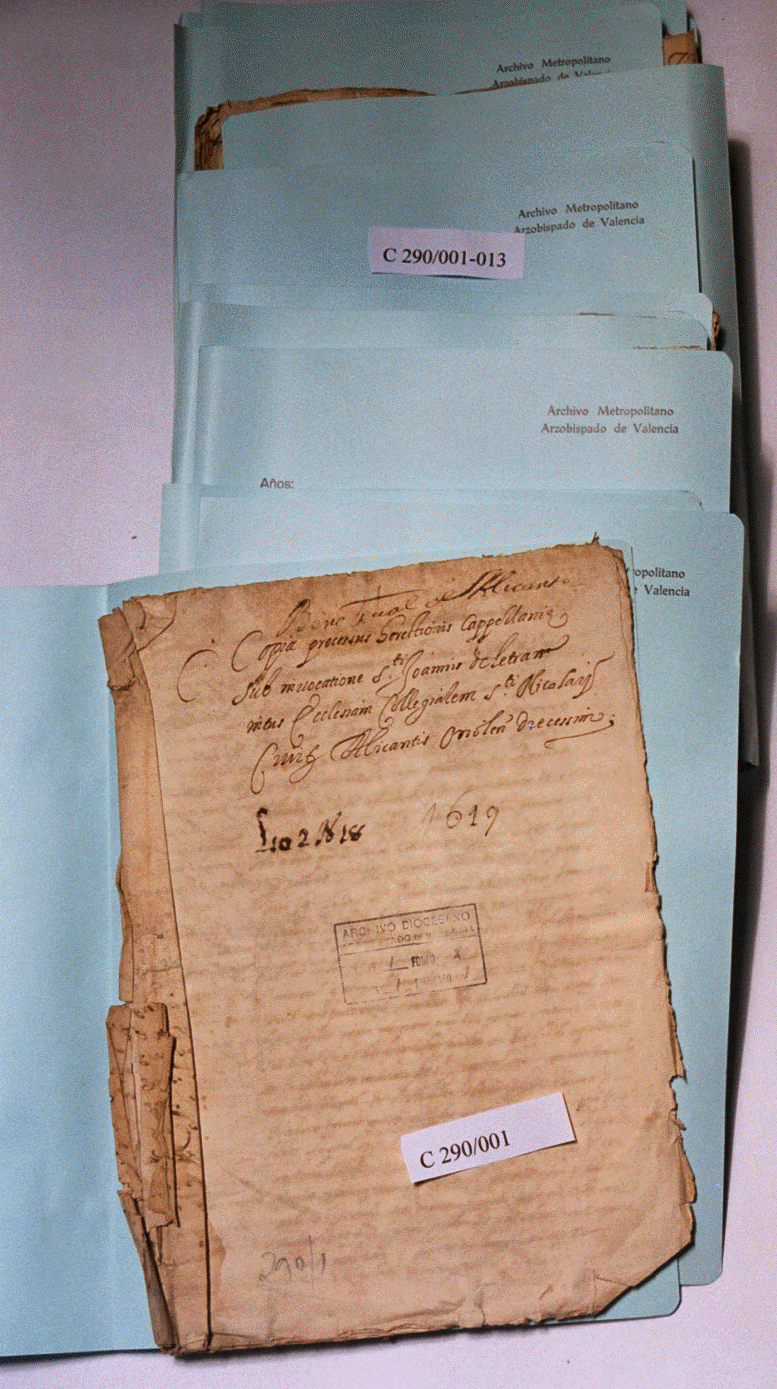 Archivo Metropolitano
Arzobispado de Valencia
Archivo Metropolitano
Arzobispado de Valencia
C 290/001-013
Archivo Metropolitano
Arzobispado de Valencia
Años:
opolitano
Valencia
Alicante
Copia processus herectionis Cappellaniæ
sub invocatione s.ti Joannis de Letran
intus Ecclesiam Collegialem s.ti Nicolay
Alicantis Oriolen
1619
ARCHIVO DIOCESANO
1 FONDO X
1
C 290/001
290/1